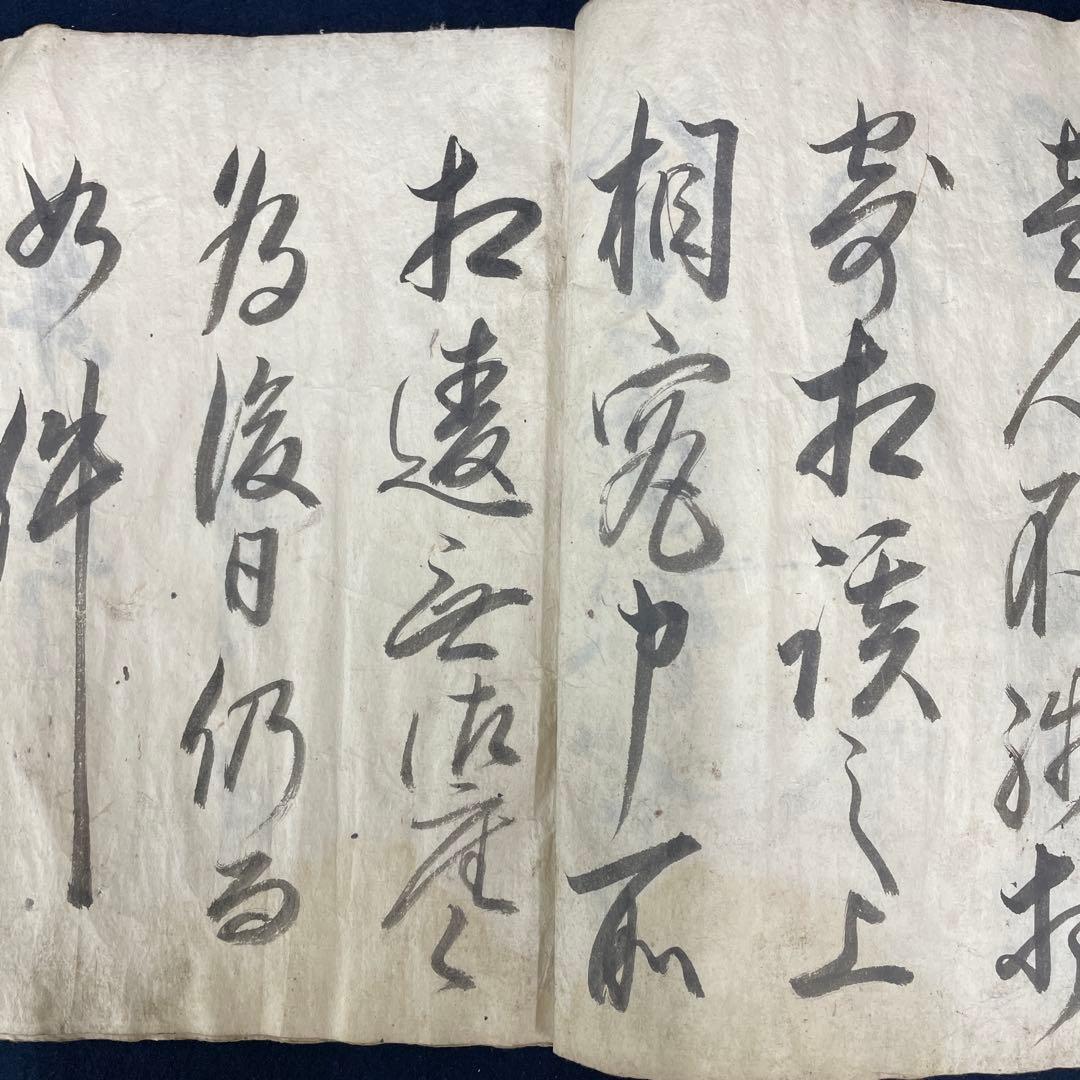 人不残打
寄相談之上
相究申所
相違無御座候
為後日仍而
如件